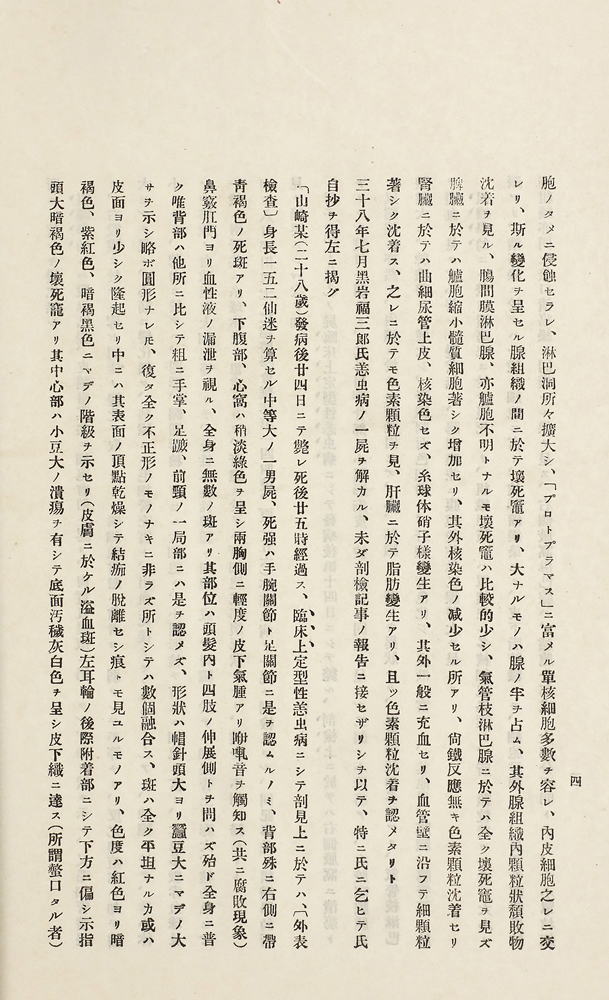 胞ノタメニ侵蝕セラレ、淋巴洞所々擴大シ、「プロトプラマス」ニ富メル單核細胞多數ヲ容レ、內皮細胞之レニ交
レリ、斯ル變化ヲ呈セル腺組織ノ間ニ於テ壞死竈アリ、大ナルモノハ腺ノ半ヲ占ム、其外腺組織內顆粒狀頽敗物
沈着ヲ見ル、腸間膜淋巴腺、亦艫胞不明トナルモ壞死竈ハ比較的少シ、氣管枝淋巴腺ニ於テハ全ク壞死竈ヲ見ズ
脾臟ニ於テハ艫胞縮小髓質細胞著シク增加セリ、其外核染色ノ减少セル所アリ、尙鐵反應無キ色素顆粒沈着セリ
腎臟ニ於テハ曲細尿管上皮、核染色セズ、糸球体硝子樣變生アリ、其外一般ニ充血セリ、血管壁ニ沿フテ細顆粒
著シク沈着ス、之レニ於テモ色素顆粒ヲ見、肝臟ニ於テ脂肪變生アリ、且ッ色素顆粒沈着ヲ認メタリト
三十八年七月黑岩福三郞氏恙虫病ノ一屍ヲ解カル、未ダ剖檢記事ノ報告ニ接セザリシヲ以テ、特ニ氏ニ乞ヒテ氏
自抄ヲ得左ニ揭グ
「山崎某(二十八歲)發病後廿四日ニテ斃レ死後廿五時經過ス、臨床上定型性恙虫病ニシテ剖見上ニ於テハ、「外表
檢查〕身長一五二仙迷ヲ算セル中等大ノ一男屍、死强ハ手腕關節ト足關節ニ是ヲ認ムルノミ、背部殊ニ右側ニ帶
靑褐色ノ死斑アリ、下腹部、心窩ハ稍淡綠色ヲ呈シ兩胸側ニ輕度ノ皮下氣腫アリ咿軋音ヲ觸知ス(共ニ腐敗現象)
鼻竅肛門ヨリ血性液ノ漏泄ヲ視ル、全身ニ無數ノ斑アリ其部位ハ頭髮內ト四肢ノ伸展側トヲ問ハズ殆ド全身ニ普
ク唯背部ハ他所ニ比シテ粗ニ手掌、足蹠、前頸ノ一局部ニハ是ヲ認メズ、形狀ハ帽針頭大ヨリ蠶豆大ニマデノ大
サヲ示シ略ボ圓形ナレ𪜈、復タ全ク不正形ノモノナキニ非ラズ所トシテハ數個融合ス、斑ハ全ク平坦ナルカ或ハ
皮面ヨリ少シク隆起セリ中ニハ其表面ノ頂點乾燥シテ結痂ノ脫離セシ痕トモ見ユルモノアリ、色度ハ紅色ヨリ暗
褐色、紫紅色、暗褐黑色ニマデノ階級ヲ示セリ(皮膚ニ於ケル溢血斑)左耳輪ノ後際附着部ニシテ下方ニ偏シ示指
頭大暗褐色ノ壞死竈アリ其中心部ハ小豆大ノ潰瘍ヲ有シテ底面汚穢灰白色ヲ呈シ皮下織ニ達ス(所謂螫口タル者)
四